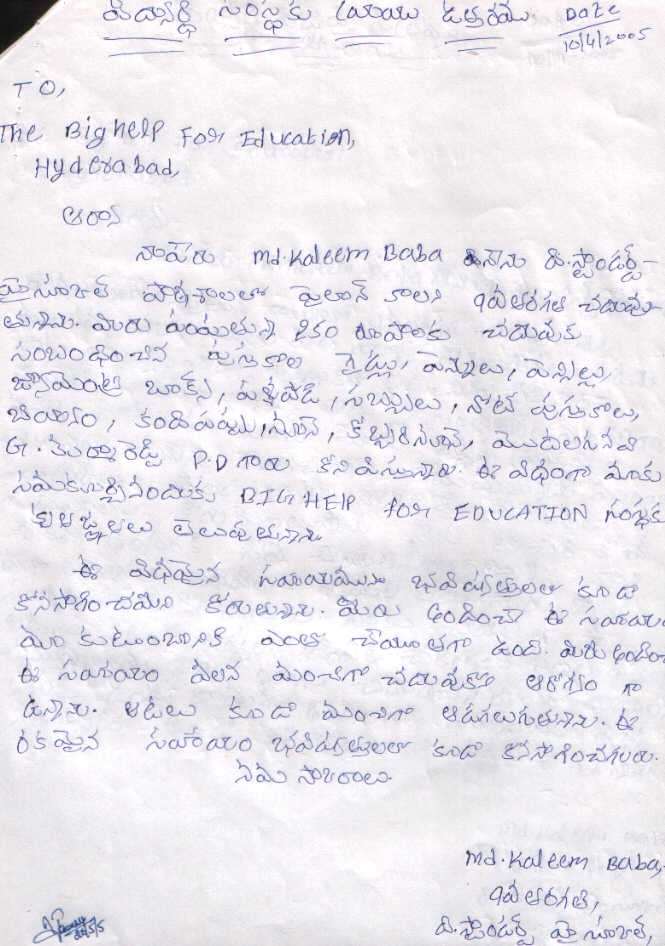 విద్యార్థి సంస్థకు వ్రాయు ఉత్తరము Date
10/4/2005
TO,
The Big help For Education,
Hyderabad,
ఆర్యా
నాపేరు Md. Kaleem Baba నేను ది. స్టాండర్డ్
హైస్కూల్ పాఠశాలలో 9వ తరగతి చదువు
తున్నాను. మీరు పంపుతున్న రూపాలకు చదువుకు
సంబంధించిన పుస్తకాల గైడ్లు, పెన్నులు, పెన్సిల్లు,
బాక్స్, సబ్బులు, నోట్ పుస్తకాలు,
బియ్యం, కందిపప్పు, నూనె, కొబ్బరినూనె, మొదలగునవి
G. రెడ్డి P.D గారు కొని పిస్తున్నారు. ఈ విధంగా మాకు
సమకూర్చినందుకు BIG HELP FOR EDUCATION సంస్థకు
కృతజ్ఞతలు తెలుపుతున్నాను
ఈ విధమైన సహాయమును భవిష్యత్తులో కూడా
కొనసాగించమని కోరుతున్నాను. మీరు అందించే ఈ సహాయం
మా కుటుంబానికి ఎంతో చేయూతగా ఉంది. మీరు అందించే
ఈ సహాయం వలన మంచిగా చదువుకొని ఆరోగ్యం గా
ఉన్నాను. ఆటలు కూడా మంచిగా ఆడగలుగుతున్నాను. ఈ
రకమైన సహాయం భవిష్యత్తులో కూడా కొనసాగించగలరు.
Md. Kaleem Baba,
9వ తరగతి,
ది. స్టాండర్డ్ హై స్కూల్,